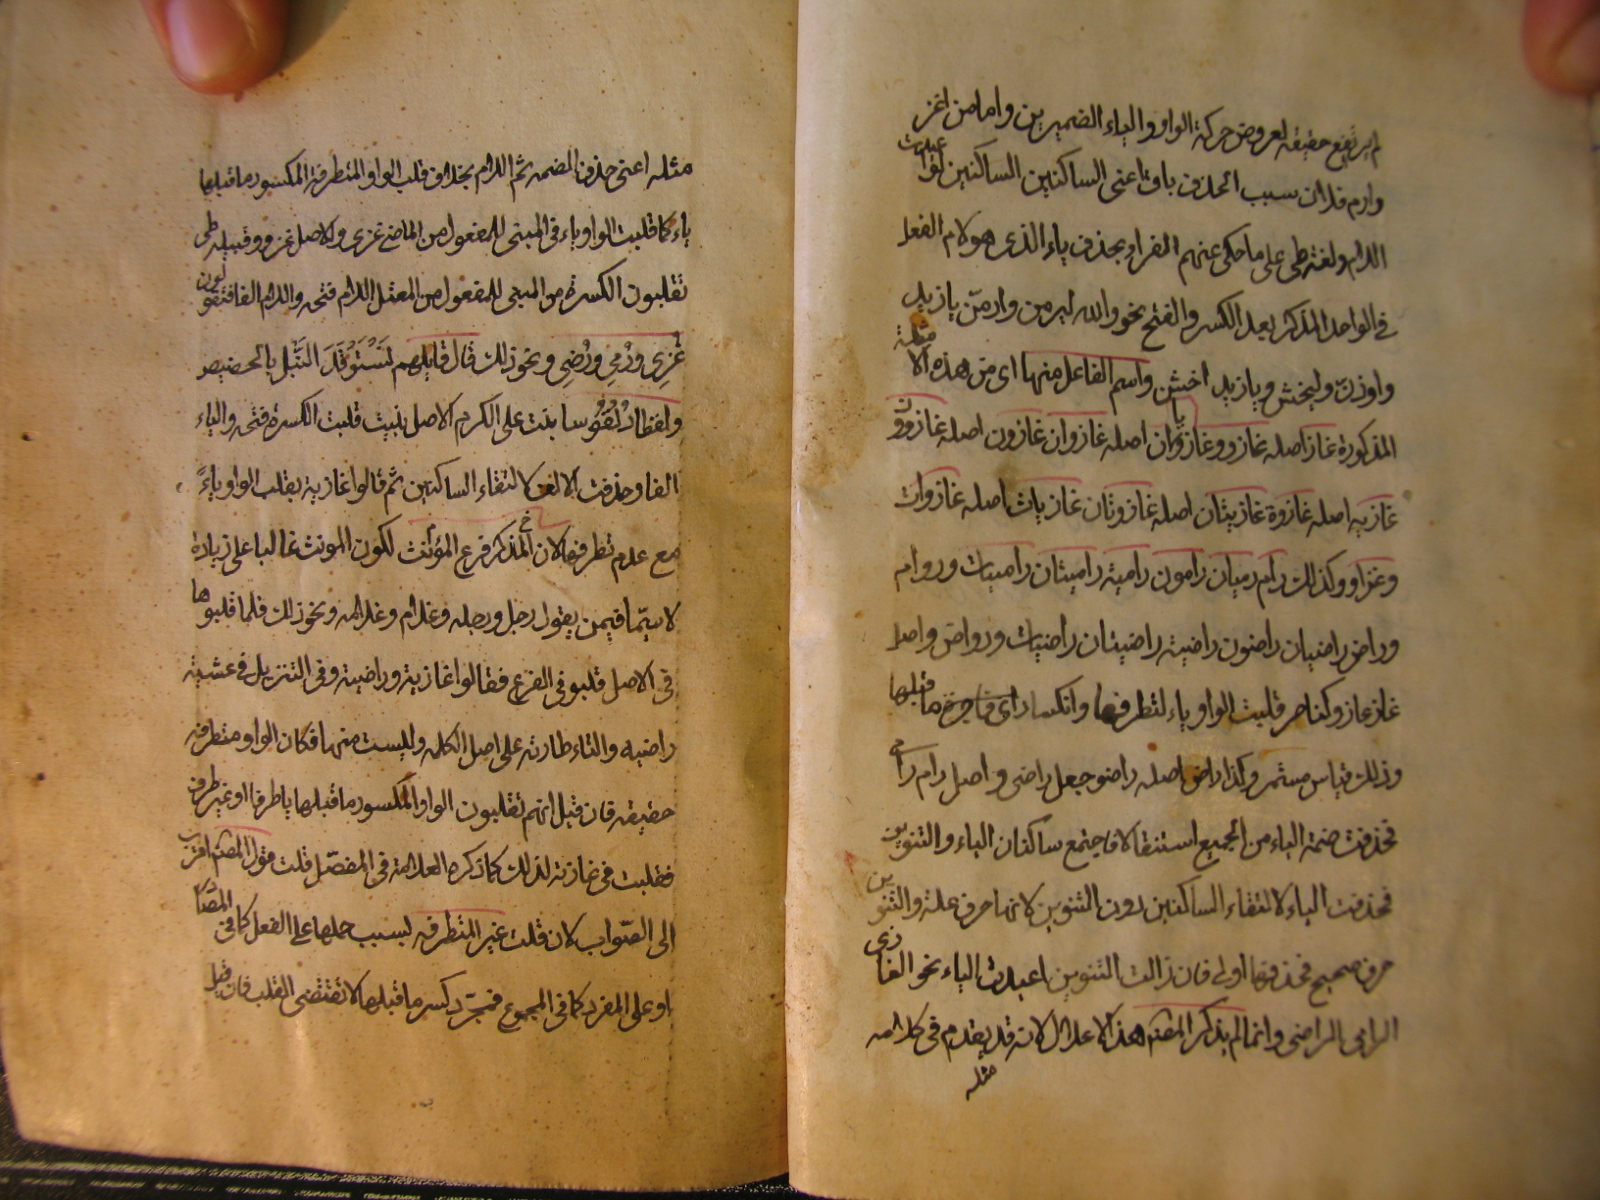 لم يرتفع حقيقة لعروض حركة الواو والياء الضميرين واما من اغز
وارم فلان سبب الحذف باق اعنى الساكنين الساكنين لو اعيدت
اللام ولغة طى على ما حكى عنهم الفراء بحذف ياء الذى هو لام الفعل
فى الواحد المذكر بعد الكسر والفتح نحو والله ليرمن وارمن يا زيد
وليخش ويا زيد اخشن واسم الفاعل منها اى من هذه الامثلة
المذكورة غاز اصله غازو غازيان اصله غازوان غازون اصله غازوون
غازية اصله غازوة غازيتان اصله غازوتان غازيات اصله غازوات
وغزاو وكذلك رام رميان رامون رامية راميتان راميات وروام
وراض راضيان راضون راضية راضيتان راضيات ورواض واصل
غاز غازو كناصر قلبت الواو ياء لتطرفها وانكسار اى ما قبلها
وذلك قياس مستمر وكذا راض اصله راضو جعل راضى واصل رام رامى
فحذفت ضمة الياء من الجميع استثقالا فاجتمع ساكنان الياء والتنوين
فحذفت الياء لالتقاء الساكنين دون التنوين لانها حرف علة والتنوين
حرف صحيح فحذفها اولى فان زالت التنوين اعيدت الياء نحو الغازى
الرامى الراضى وانما لم يذكر المصنف هذا الاعلال لانه قد يقدم فى كلامه
مثله
مثله اعنى حذف الضمة ثم اللام بخلاف قلب الواو المتطرفة المكسور ما قبلها
ياء كما قلبت الواو ياء فى المبنى للمفعول من الماضى غزى والاصل غزو وقبيله طى
تقلبون الكسرة من المبنى للمفعول من المعتل اللام فتحة واللام الفا فتقولون
غزى ورمى ورضى ونحو ذلك قال قايلهم نستوقد النبل بالحضيض
ونصطاد نفوسا بنت على الكرم الاصل بنيت قلبت الكسرة فتحة والياء
الفا وحذفت الالف لالتقاء الساكنين ثم قالوا غازية بقلب الواو ياء
مع عدم تطرفها لان المذكر فرع المؤنث لكون المونث غالبا على زيادة
لا سيما فيمن يقول رجل ورجلة وغلام وغلامة ونحو ذلك فلما قلبوها
فى الاصل قلبو فى الفرع فقالوا غازية وراضية وفى التنزيل فى عشية
راضيه والتاء طارئة على اصل الكلمه وليست منها فكان الواو متطرفة
حقيقة فان قيل انهم تقلبون الواو المكسور ما قبلها يا طرفا او غير طرف
فقلبت فى غازية لذلك كما ذكره العلامة فى المفصل قلت قول المصنف اقرب
الى الصواب لان قلت غير المتطرفة لسبب حملها على الفعل كما فى المصدر
او على المفرد كما فى المجموع فمجرد كسر ما قبلها لا تقتضى القلب فان قيل